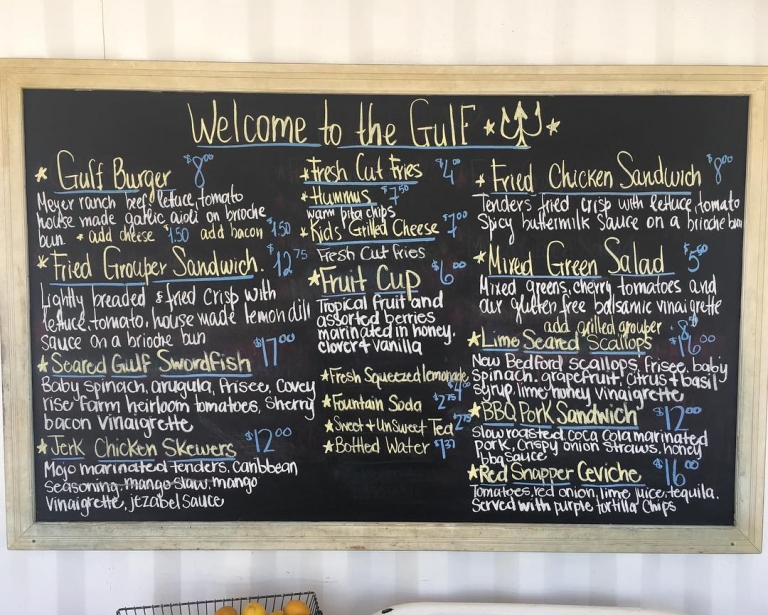 Welcome to the Gulf
Gulf Burger $8.00
Meyer ranch beef, lettuce, tomato
house made garlic aioli on brioche
bun. * add cheese $1.50 add bacon $1.50
Fried Grouper Sandwich. $12.75
Lightly breaded & fried crisp with
lettuce, tomato, house made lemon dill
sauce on a brioche bun
Seared Gulf Swordfish $17.00
Baby spinach, arugula, frisee, Covey
rise farm heirloom tomatoes, sherry
bacon vinaigrette
Jerk Chicken Skewers $12.00
Mojo marinated tenders, caribbean
seasoning, mango slaw, mango
vinaigrette, jezabel sauce
Fresh Cut Fries $4.00
Hummus $7.50
warm pita chips
Kids Grilled Cheese $7.00
Fresh Cut fries
Fruit Cup $6.00
Tropical fruit and
assorted berries
marinated in honey,
clover & vanilla
Fresh Squeezed lemonade
Fountain Soda $2.75
Sweet & UnSweet Tea 2.75
Bottled Water
Fried Chicken Sandwich $8.00
Tenders fried crisp with lettuce, tomato
Spicy buttermilk sauce on a brioche bun
Mixed Green Salad
Mixed greens, cherry tomatoes and
our gluten free balsamic vinaigrette
add grilled grouper
Lime Seared Scallops $16.00
New Bedford scallops, frisee, baby
spinach, grapefruit, citrus & basil
syrup, lime honey vinaigrette
BBQ Pork Sandwich $12.00
slow roasted, coca cola marinated
pork, crispy onion straws, honey
bbq sauce
Red Snapper Ceviche $16.00
Tomatoes, red onion, lime juice, tequila.
Served with purple tortilla chips